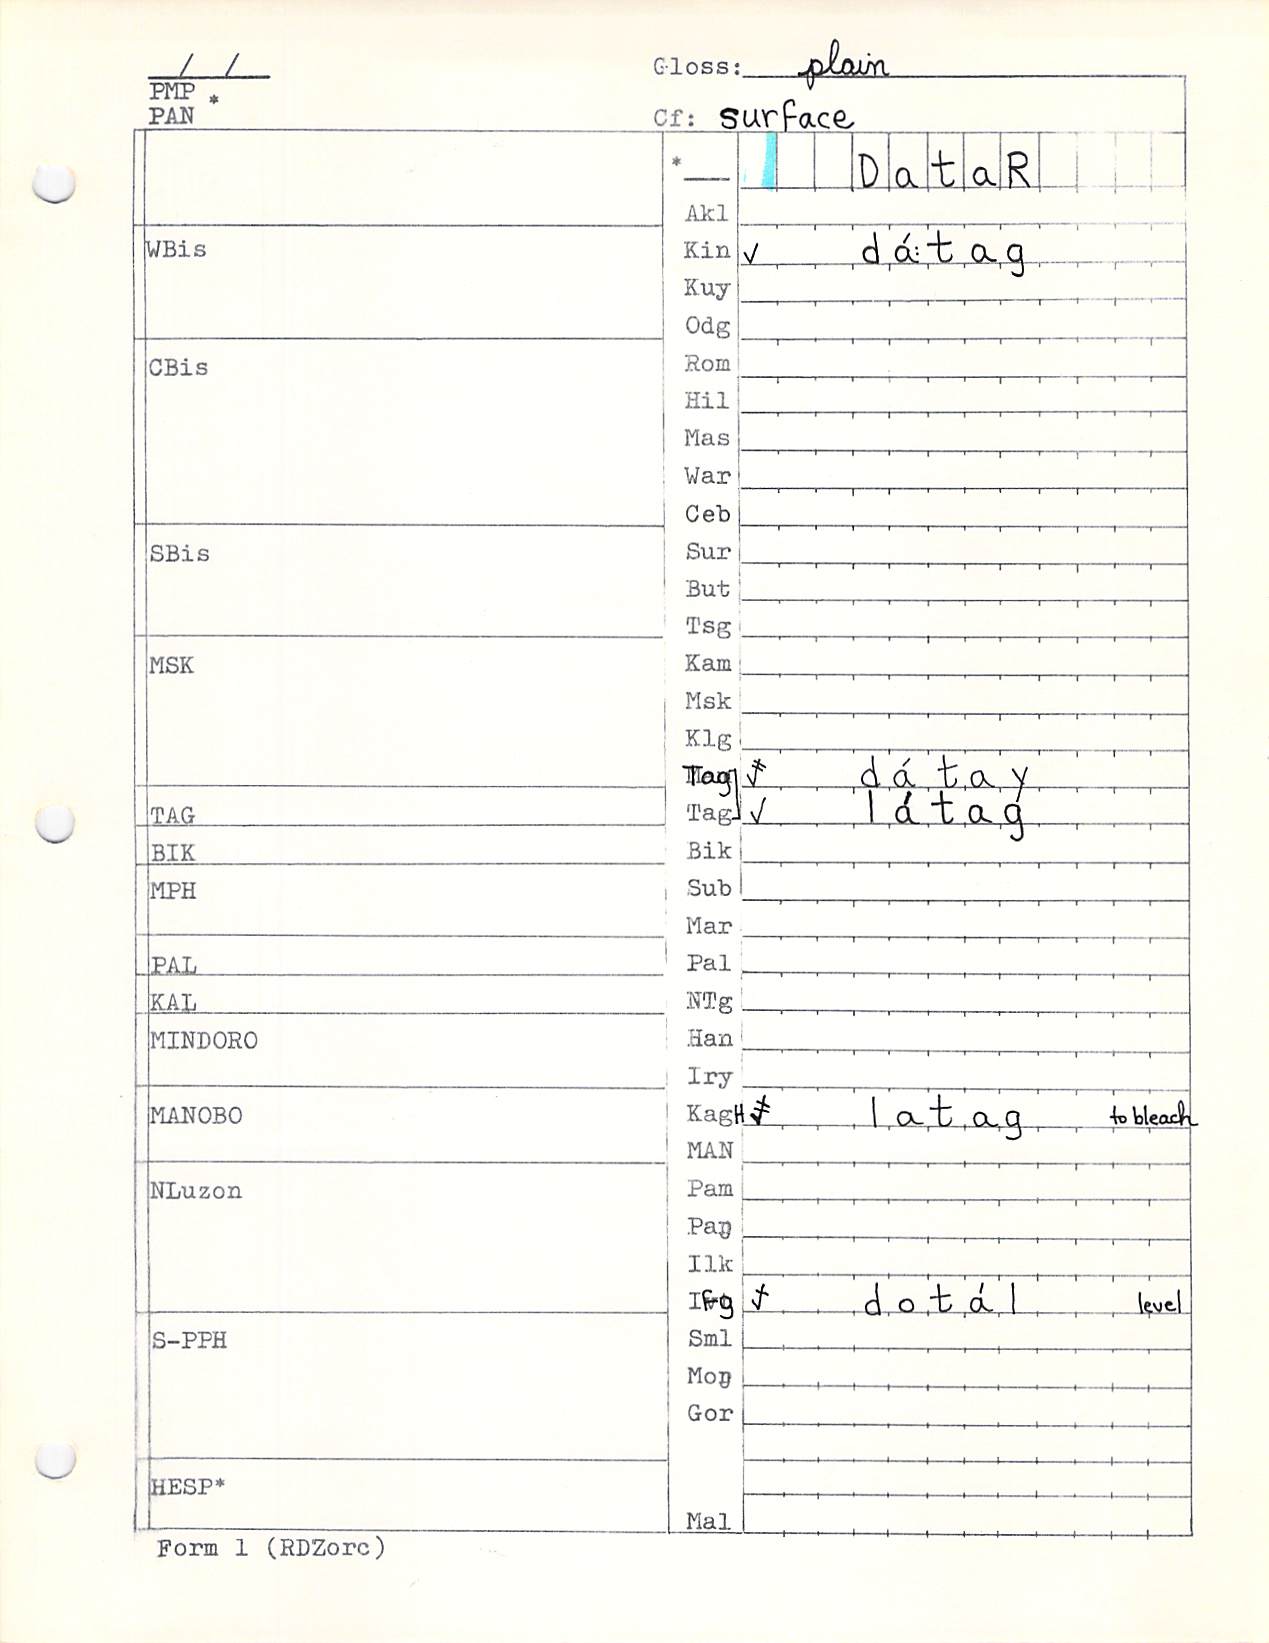 / /
Gloss: plain
PMP *
PAN
Cf: surface
* DataR
Akl
WBis
Kin ✓ dá:tag
Kuy
Odg
CBis
Rom
Hil
Mas
War
Ceb
SBis
Sur
But
Tsg
MSK
Kam
Msk
Klg
Tag dátay
TAG
Tag ✓ látag
BIK
Bik
MPH
Sub
Mar
PAL
Pal
KAL
NTg
MINDORO
Han
Iry
MANOBO
KagH latag to bleach
MAN
NLuzon
Pam
Paŋ
Ilk
Ifg dotál level
S-PPH
Sml
Moŋ
Gor
HESP*
Mal
Form 1 (RDZorc)